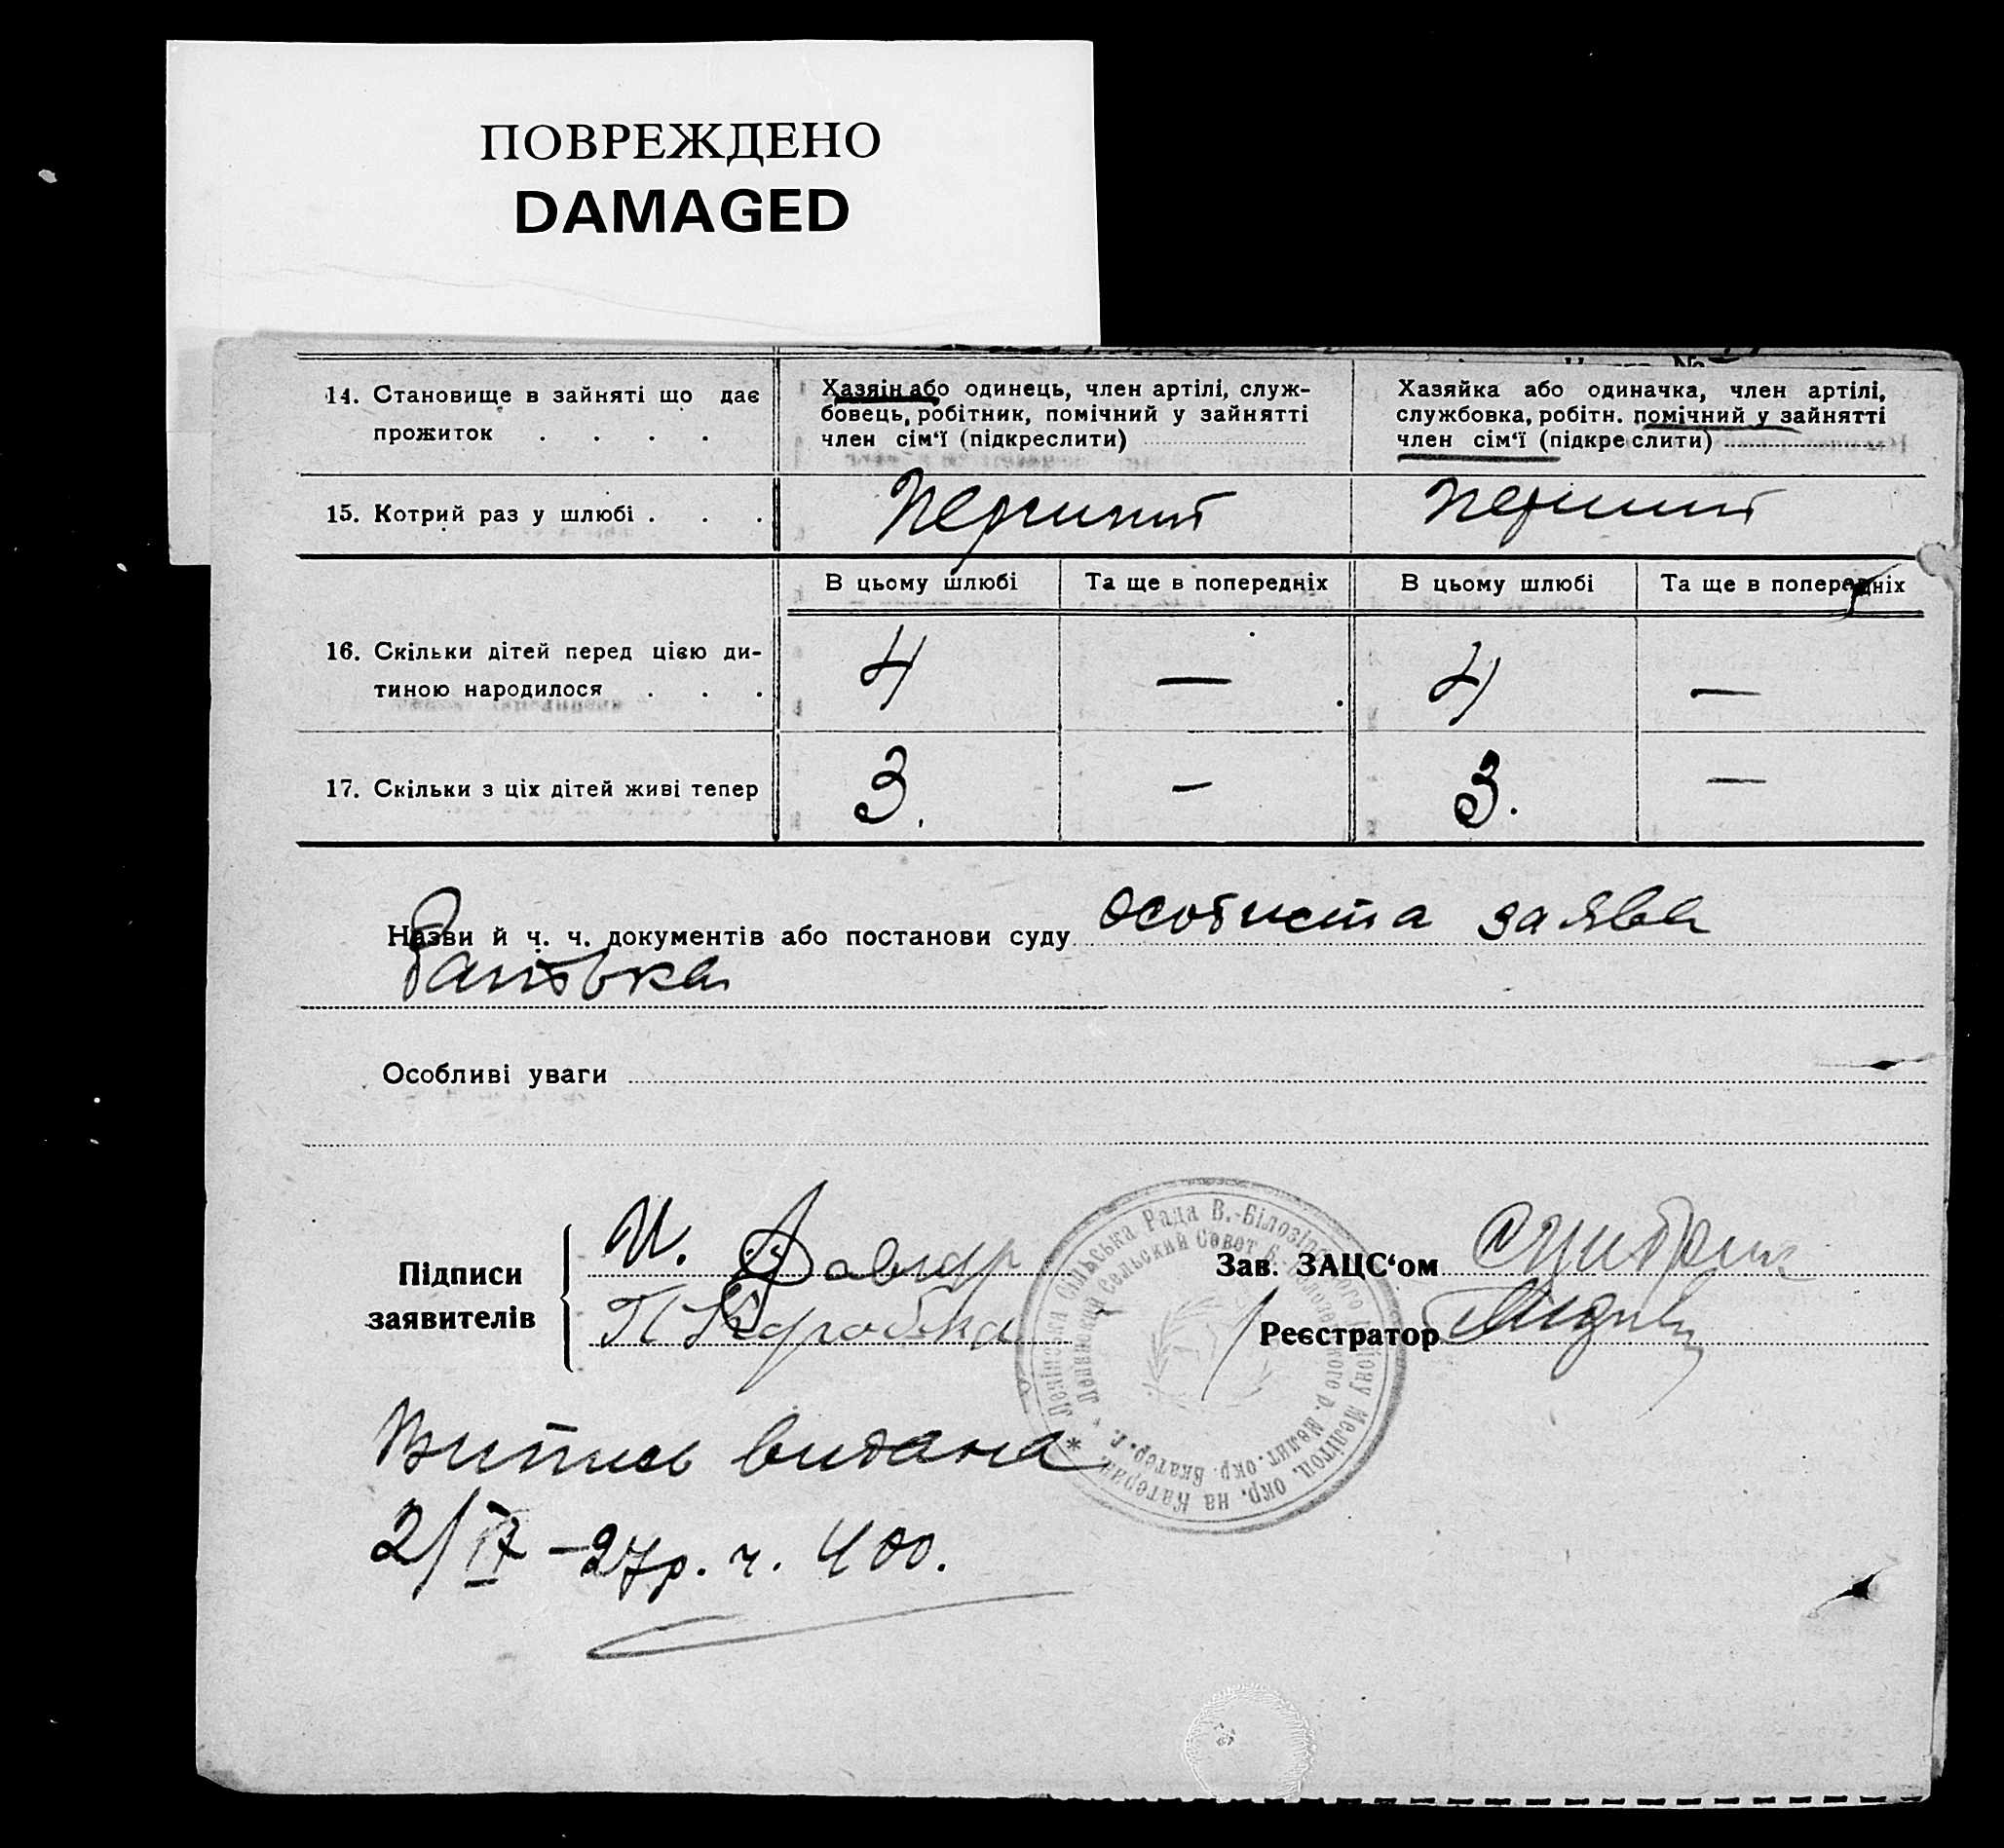 ПОВРЕЖДЕНО
DAMAGED
14. Становище в зайняті що дає
прожиток . . . .
Хазяін або одинець, член артілі, служ-
бовець, робітник, помічний у зайнятті
член сім‘ї (підкреслити)
Хазяйка або одиначка, член артілі,
службовка, робітн. помічний у зайнятті
член сім‘ї (підкреслити)
15. Котрий раз у шлюбі . . .
Перший
перший
В цьому шлюбі
Та ще в попередніх
В цьому шлюбі
Та ще в попередніх
16. Скільки дітей перед цією ди-
тиною народилося . . .
4
—
4
—
17. Скільки з ціх дітей живі тепер
3.
—
3.
—
Назви й ч. ч. документів або постанови суду особиста заява
батька
Особливі уваги
Підписи
заявителів
И.
П
Зав. ЗАЦС‘ом
Реєстратор
Ленінська Сільська Рада В.-Білозірського Району Мелітоп. окр. на Катерин.
Ленинский Сельский Совет Б.-Белозерского р. Мелит. окр. Екатер. г.
Витись видана
2/IV – 27р. ч. 400.